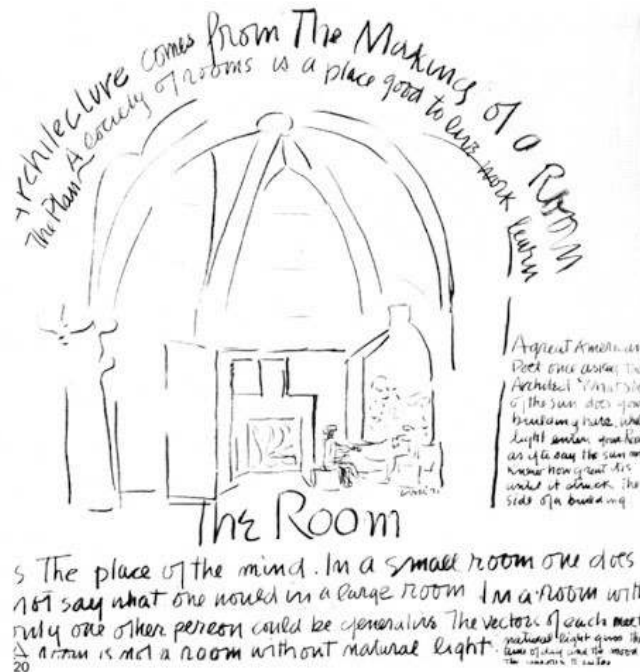 Architecture comes from The Making of a Room
The Plan A society of rooms is a place good to live work learn
A great American
Poet once asked the
Architect "What sl
of the sun does your
building have, what
light enters your Room
as if to say the sun never
knew how great it is
until it struck the
side of a building
The Room
s The place of the mind. In a small room one does
not say what one would in a large room In a room with
only one other person could be generative The vectors of each meet
A room is not a room without natural light.
natural light gives the
time of day and the mood
20